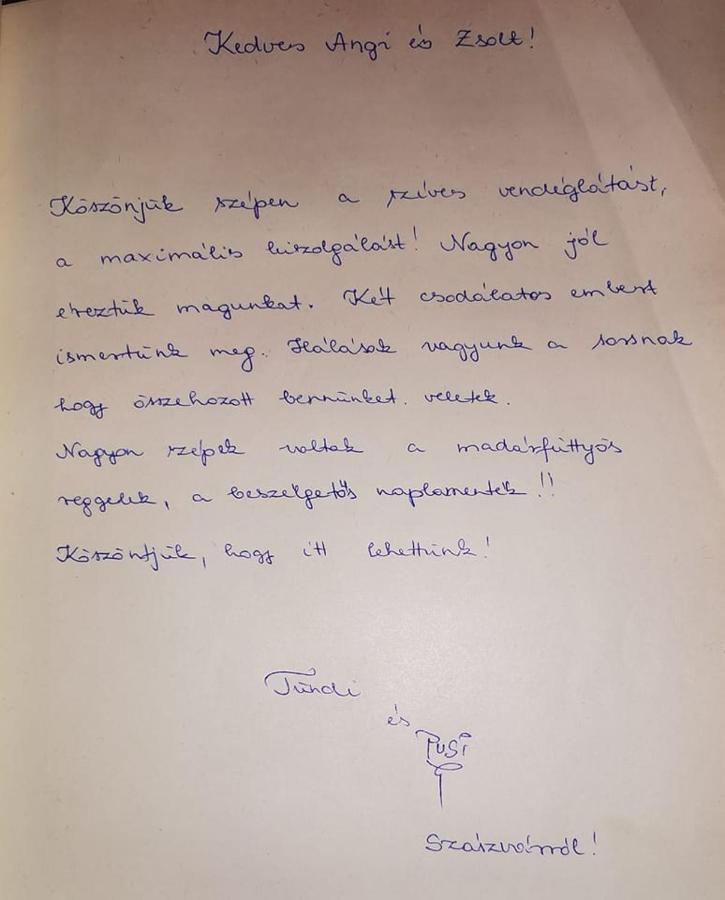 Kedves Angi és Zsolt!
Köszönjük szépen a szíves vendéglátást,
a maximális kiszolgálást! Nagyon jól
éreztük magunkat. Két csodálatos embert
ismertünk meg. Hálások vagyunk a sorsnak
hogy összehozott bennünket veletek.
Nagyon szépek voltak a madárfüttyös
reggelek, a beszélgetős naplementék!!
Köszöntjük, hogy itt lehettünk!
Tündi
és
Pusi